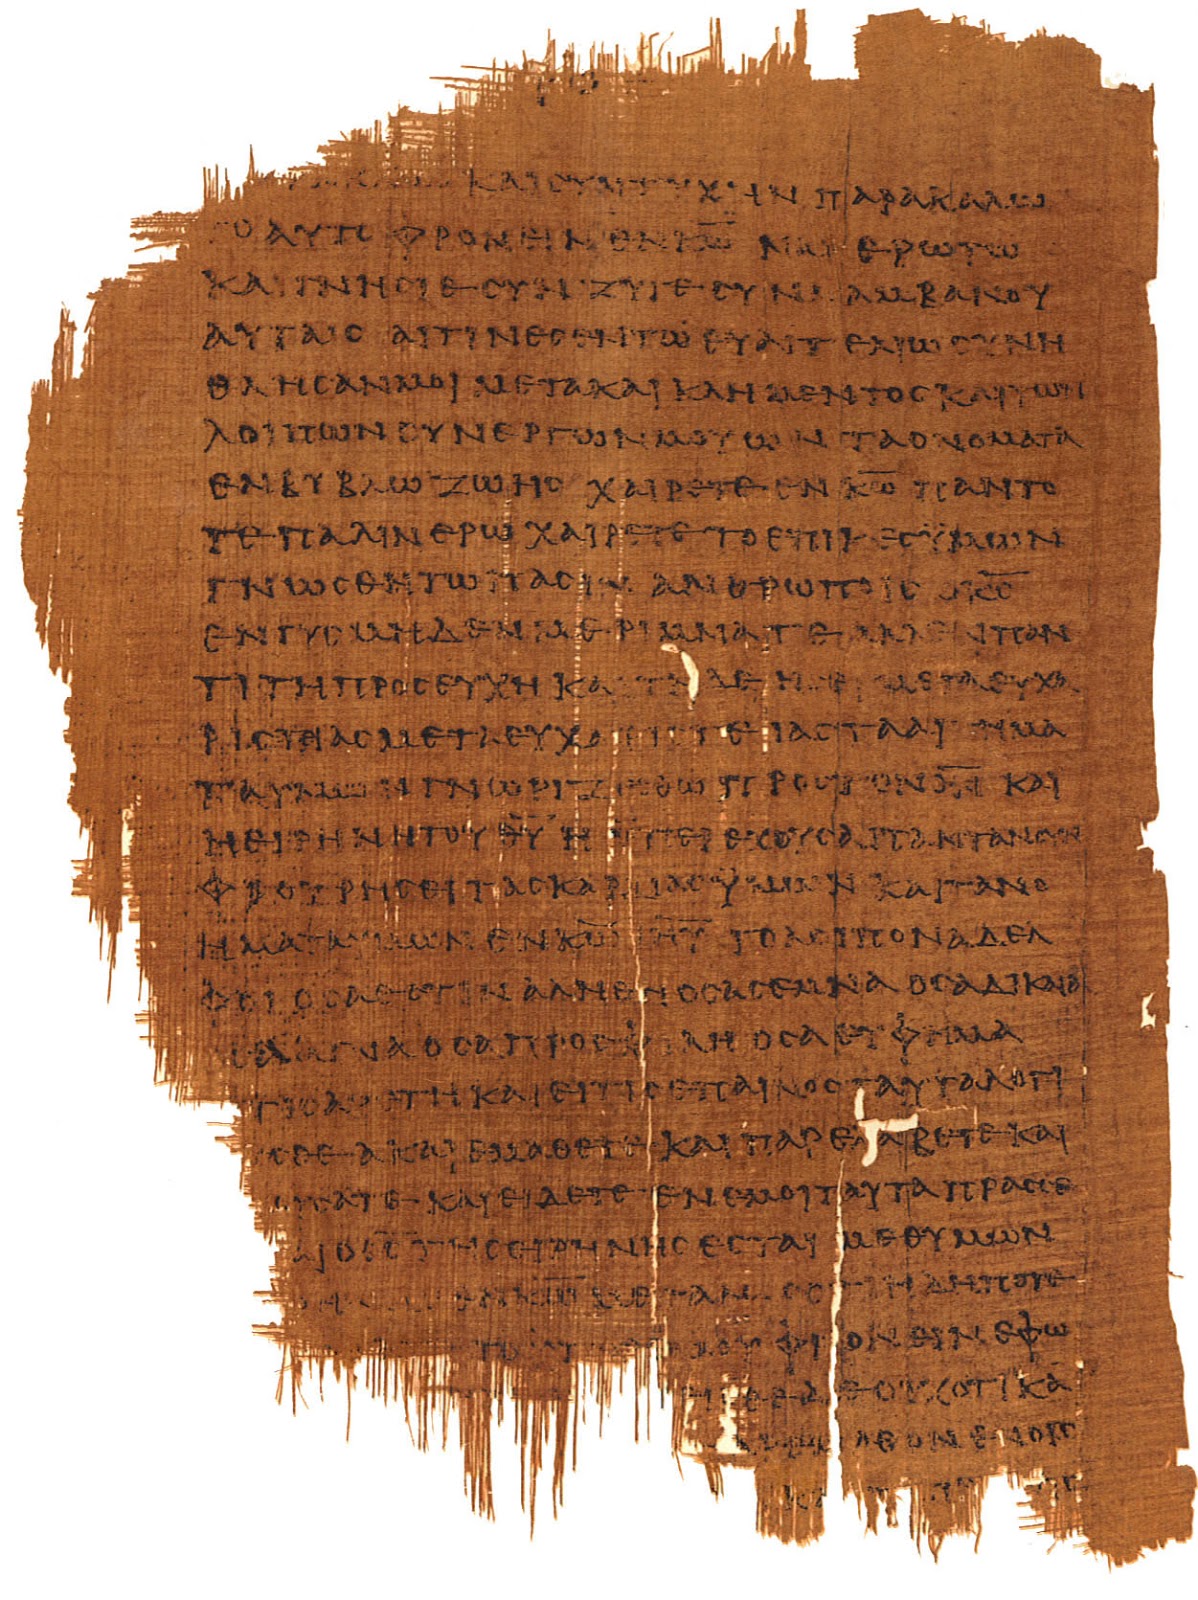 ΚΑΙ ϹΥΝΤΥΧΗΝ ΠΑΡΑΚΑΛΩ
ΤΟ ΑΥΤΟ ΦΡΟΝΕΙΝ ΕΝ Κ̅Ω̅ ΝΑΙ ΕΡΩΤΩ
ΚΑΙ ΓΝΗϹΙΕ ϹΥΝΖΥΓΕ ϹΥΝΛΑΜΒΑΝΟΥ
ΑΥΤΑΙϹ ΑΙΤΙΝΕϹ ΕΝ ΤΩ ΕΥΑΓΓΕΛΙΩ ϹΥΝΗ
ΘΛΗϹΑΝ ΜΟΙ ΜΕΤΑ ΚΑΙ ΚΛΗΜΕΝΤΟϹ ΚΑΙ ΤΩΝ
ΛΟΙΠΩΝ ϹΥΝΕΡΓΩΝ ΜΟΥ ΩΝ ΤΑ ΟΝΟΜΑΤΑ
ΕΝ ΒΥΒΛΩ ΖΩΗϹ ΧΑΙΡΕΤΕ ΕΝ Κ̅Ω̅ ΠΑΝΤΟ
ΤΕ ΠΑΛΙΝ ΕΡΩ ΧΑΙΡΕΤΕ ΤΟ ΕΠΙΙΚΕϹ ΫΜΩΝ
ΓΝΩϹΘΗΤΩ ΠΑϹΙΝ ΑΝΘΡΩΠΟΙϹ Ο Κ̅Ϲ̅
ΕΝΓΥϹ ΜΗΔΕΝ ΜΕΡΙΜΝΑΤΕ ΑΛΛ ΕΝ ΠΑΝ
ΤΙ ΤΗ ΠΡΟϹΕΥΧΗ ΚΑΙ ΤΗ ΔΕΗϹΕΙ ΜΕΤΑ ΕΥΧΑ
ΡΙϹΤΙΑϹ ΜΕΤΑ ΕΥΧΑΡΙϹΤΕΙΑϹ ΤΑ ΑΙΤΗΜΑ
ΤΑ ΥΜΩΝ ΓΝΩΡΙΖΕϹΘΩ ΠΡΟϹ ΤΟΝ Θ̅Ν̅ ΚΑΙ
Η ΕΙΡΗΝΗ ΤΟΥ Θ̅Υ̅ Η ΫΠΕΡΕΧΟΥϹΑ ΠΑΝΤΑ ΝΟΥΝ
ΦΡΟΥΡΗϹΕΙ ΤΑϹ ΚΑΡΔΙΑϹ ΫΜΩΝ ΚΑΙ ΤΑ ΝΟ
ΗΜΑΤΑ ΥΜΩΝ ΕΝ ΤΟ ΛΟΙΠΟΝ ΑΔΕΛ
ΦΟΙ ΟϹΑ ΕϹΤΙΝ ΑΛΗΘΗ ΟϹΑ ϹΕΜΝΑ ΟϹΑ ΔΙΚΑΙΑ
ΟϹΑ ΑΓΝΑ ΟϹΑ ΠΡΟϹΦΙΛΗ ΟϹΑ ΕΥΦΗΜΑ
ΤΙϹ ΑΡΕΤΗ ΚΑΙ ΕΙ ΤΙϹ ΕΠΑΙΝΟϹ ΤΑΥΤΑ ΛΟΓΙ
ϹΘΕ Α ΚΑΙ ΕΜΑΘΕΤΕ ΚΑΙ ΠΑΡΕΛΑΒΕΤΕ ΚΑΙ
ΟΥϹΑΤΕ ΚΑΙ ΕΙΔΕΤΕ ΕΝ ΕΜΟΙ ΤΑΥΤΑ ΠΡΑϹϹΕ
ΚΑΙ Ο Θ̅Ϲ̅ ΤΗϹ ΕΙΡΗΝΗϹ ΕϹΤΑΙ ΜΕΘ ΥΜΩΝ
ΕΝ Κ̅Ω̅ ΜΕΓΑΛΩϹ ΟΤΙ ΗΔΗ ΠΟΤΕ
ΦΡΟΝΕΙΝ ΕΦ Ω